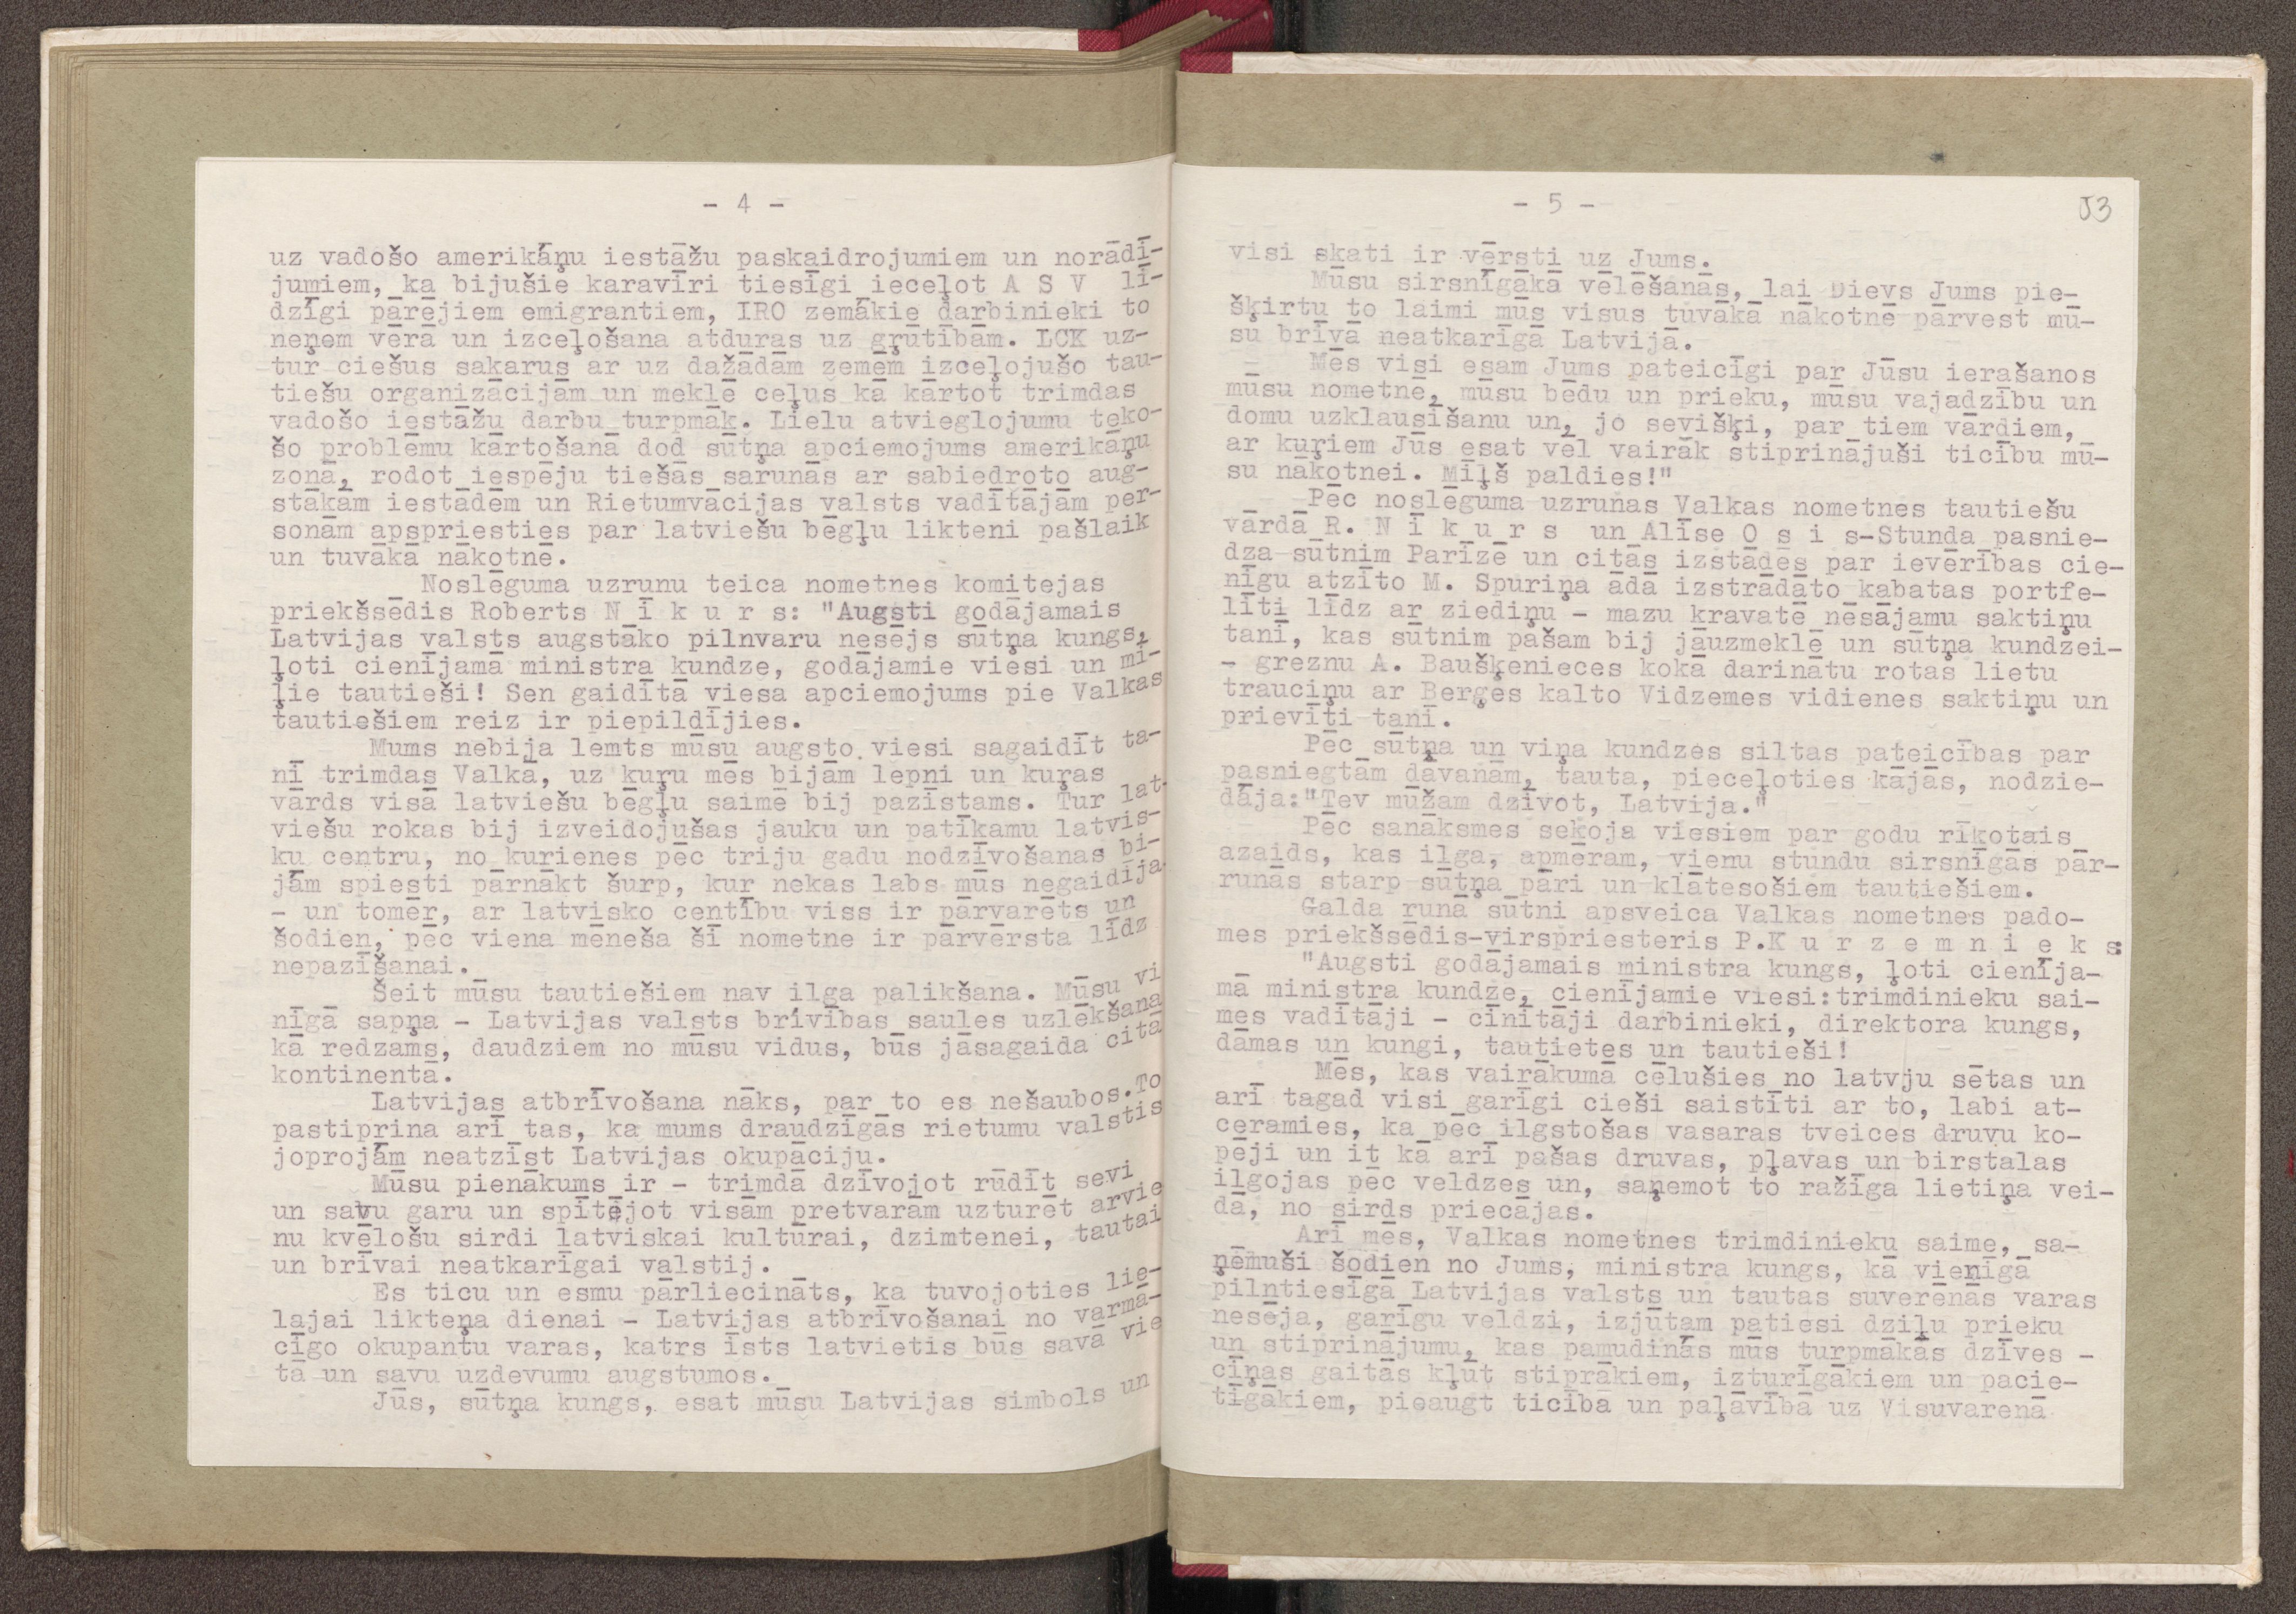 - 4 -
uz vadošo amerikāņu iestāžu paskaidrojumiem un norādī-
jumiem, ka bijušie karavīri tiesīgi ieceļot A S V lī-
dzīgi pārējiem emigrantiem, IRO zemākie darbinieki to
neņem vērā un izceļošana atduras uz grūtībām. LCK uz-
tur ciešus sakarus ar uz dažādām zemēm izceļojušo tau-
tiešu organizācijām un meklē ceļus kā kārtot trimdas
vadošo iestāžu darbu turpmāk. Lielu atvieglojumu teko-
šo problēmu kārtošanā dod sūtņa apciemojums amerikāņu
zonā, rodot iespēju tiešās sarunās ar sabiedroto aug-
stākām iestādēm un Rietumvācijas valsts vadītājām per-
sonām apspriesties par latviešu bēgļu likteni pašlaik
un tuvākā nākotnē.
Noslēguma uzrunu teica nometnes komitejas
priekšsēdis Roberts N ī k u r s: "Augsti godājamais
Latvijas valsts augstāko pilnvaru nesējs sūtņa kungs,
ļoti cienījamā ministra kundze, godājamie viesi un mī-
ļie tautieši! Sen gaidītā viesa apciemojums pie Valkas
tautiešiem reiz ir piepildījies.
Mums nebija lemts mūsu augsto viesi sagaidīt ta-
nī trimdas Valkā, uz kuŗu mēs bijām lepni un kuŗas
vārds visā latviešu bēgļu saimē bij pazīstams. Tur lat-
viešu rokas bij izveidojušas jauku un patīkamu latvis-
ku centru, no kurienes pēc triju gadu nodzīvošanas bi-
jām spiesti pārnākt šurp, kur nekas labs mūs negaidīja
- un tomēr, ar latvisko centību viss ir pārvarēts un
šodien, pēc viena mēneša šī nometne ir pārvērsta līdz
nepazīšanai.
Šeit mūsu tautiešiem nav ilga palikšana. Mūsu vi
nīgā sapņa - Latvijas valsts brīvības saules uzlēkšana
kā redzams, daudziem no mūsu vidus, būs jāsagaida citā
kontinentā.
Latvijas atbrīvošana nāks, par to es nešaubos. To
pastiprina arī tas, ka mums draudzīgās rietumu valstis
joprojām neatzīst Latvijas okupāciju.
Mūsu pienākums ir - trimdā dzīvojot rūdīt sevi
un savu garu un spītējot visām pretvarām uzturēt arvie
nu kvēlošu sirdi latviskai kultūrai, dzimtenei, tautai
un brīvai neatkarīgai valstij.
Es ticu un esmu pārliecināts, ka tuvojoties lie-
lajai likteņa dienai - Latvijas atbrīvošanai no varmā-
cīgo okupantu varas, katrs īsts latvietis būs savā vie
tā un savu uzdevumu augstumos.
Jūs, sūtņa kungs, esat mūsu Latvijas simbols un
- 5 -
53
visi skati ir vērsti uz Jums.
Mūsu sirsnīgākā vēlēšanās, lai Dievs Jums pie-
šķirtu to laimi mūs visus tuvākā nākotnē pārvest mū-
su brīvā neatkarīgā Latvijā.
Mēs visi esam Jums pateicīgi par Jūsu ierašanos
mūsu nometnē, mūsu bēdu un prieku, mūsu vajadzību un
domu uzklausīšanu un, jo sevišķi, par tiem vārdiem,
ar kuŗiem Jūs esat vēl vairāk stiprinājuši ticību mū-
su nākotnei. Mīļš paldies!"
Pēc noslēguma uzrunas Valkas nometnes tautiešu
vārdā R. N ī k u r s un Alīse O s i s-Stunda pasnie-
dza sūtnim Parīzē un citās izstādēs par ievērības cie-
nīgu atzīto M. Spuriņa ādā izstrādāto kabatas portfe-
līti līdz ar ziediņu - mazu kravatē nēsājamu saktiņu
tanī, kas sūtnim pašam bij jāuzmeklē un sūtņa kundzei-
- greznu A. Baušķenieces kokā darinātu rotas lietu
trauciņu ar Berģes kalto Vidzemes vidienes saktiņu un
prievīti tanī.
Pēc sūtņa un viņa kundzes siltas pateicības par
pasniegtām dāvanām, tauta, pieceļoties kājās, nodzie-
dāja:"Tev mūžam dzīvot, Latvija."
Pēc sanāksmes sekoja viesiem par godu rīkotais
azaids, kas ilga, apmēram, vienu stundu sirsnīgās pār-
runās starp sūtņa pāri un klātesošiem tautiešiem.
Galda runā sūtni apsveica Valkas nometnes pado-
mes priekšsēdis-virspriesteris P.K u r z e m n i e k s:
"Augsti godājamais ministra kungs, ļoti cienīja-
mā ministra kundze, cienījamie viesi:trimdinieku sai-
mes vadītāji - cīnītāji darbinieki, direktora kungs,
dāmas un kungi, tautietes un tautieši!
Mēs, kas vairākumā cēlušies no latvju sētas un
arī tagad visi garīgi cieši saistīti ar to, labi at-
ceramies, ka pēc ilgstošas vasaras tveices druvu ko-
pēji un it kā arī pašas druvas, pļavas un birstalas
ilgojas pēc veldzes un, saņemot to ražīga lietiņa vei-
dā, no sirds priecājas.
Arī mēs, Valkas nometnes trimdinieku saime, sa-
ņēmuši šodien no Jums, ministra kungs, kā vienīgā
pilntiesīgā Latvijas valsts un tautas suverēnās varas
nesēja, garīgu veldzi, izjūtam patiesi dziļu prieku
un stiprinājumu, kas pamudinās mūs turpmākās dzīves -
cīņas gaitās kļūt stiprākiem, izturīgākiem un pacie-
tīgākiem, pieaugt ticībā un paļāvībā uz Visuvarenā